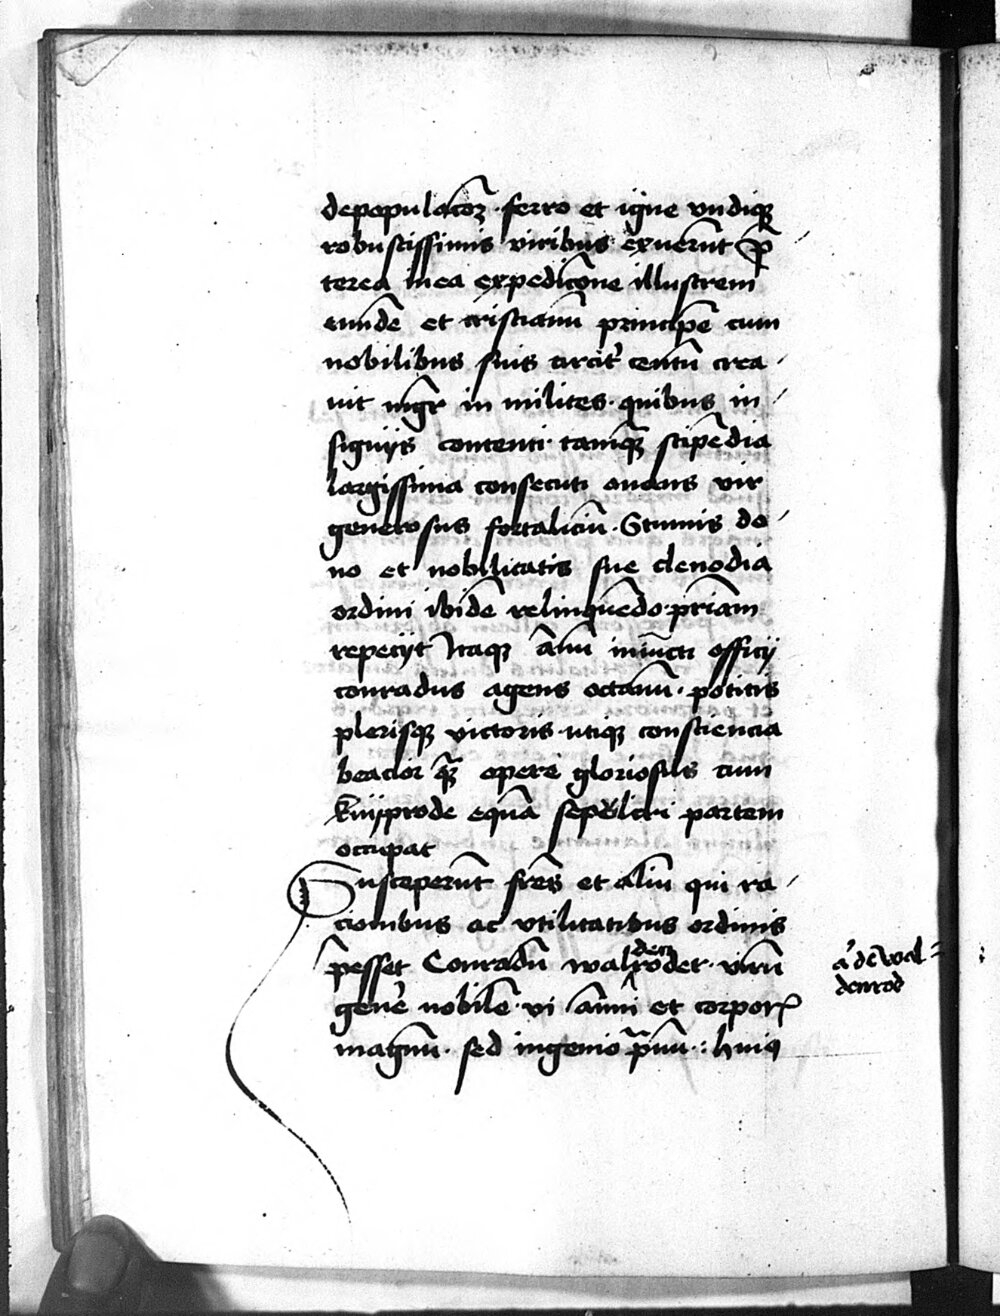 depopulacõꝫ · ferro et igne vndiqꝫ
robustissimis viribus exuerũt p̃
terea inea expedicõne illustrem
eundẽ et cristianũ principẽ cum
nobilibus suis circit᷑ centũ crea
uit mgr̃ in milites · quibus in
signijs contenti · tamqꝫ̃ stipẽdia
largissima consecuti ouans vir
generosus fortaliciũ · do
no et nobilitatis sue clenodia
ordini ibidẽ relinquẽdo · pr̃iam
repetijt Itaqꝫ ãnũ iniũcti officij
conradus agens octauũ · potitis
plerisqꝫ victoris · utiqꝫ consciencia
beacior qꝫ̃ opere gloriosus cum
knijprode equã sepulcri partem
occupat
Susceperũt fr̃es et aliũ qui ra
cionibus ac vtilitatibus ordinis
p̃esset Conradũ walroder · virũ
den
gene᷑ nobilẽ · vi ãnni et corporꝭ
magnũ · sed ingenio p̃uũ · : huiꝰ
a᷑ dẽ wal=
denrod